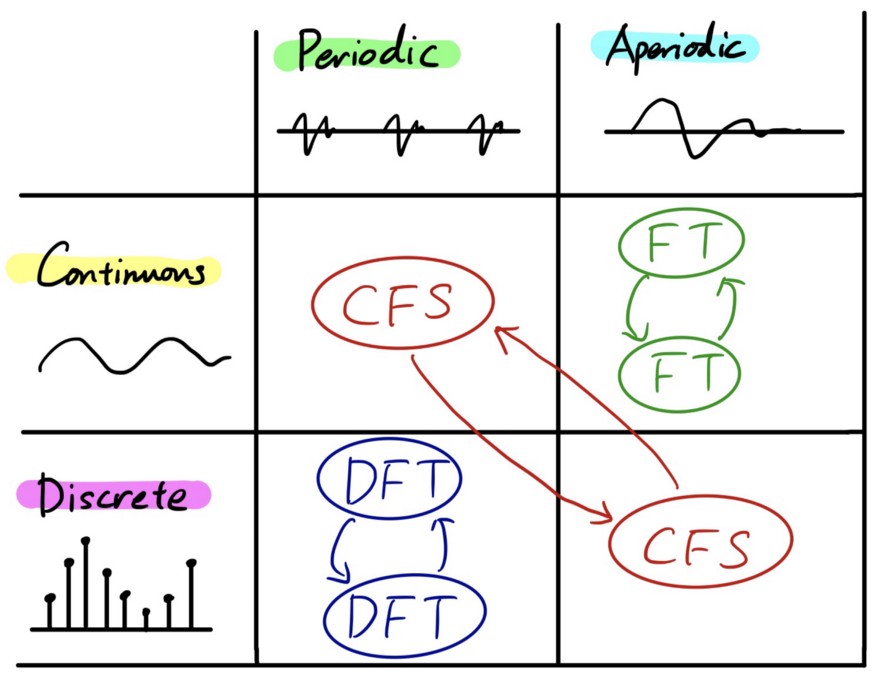 Periodic
Aperiodic
Continuous
CFS
FT
FT
Discrete
DFT
DFT
CFS